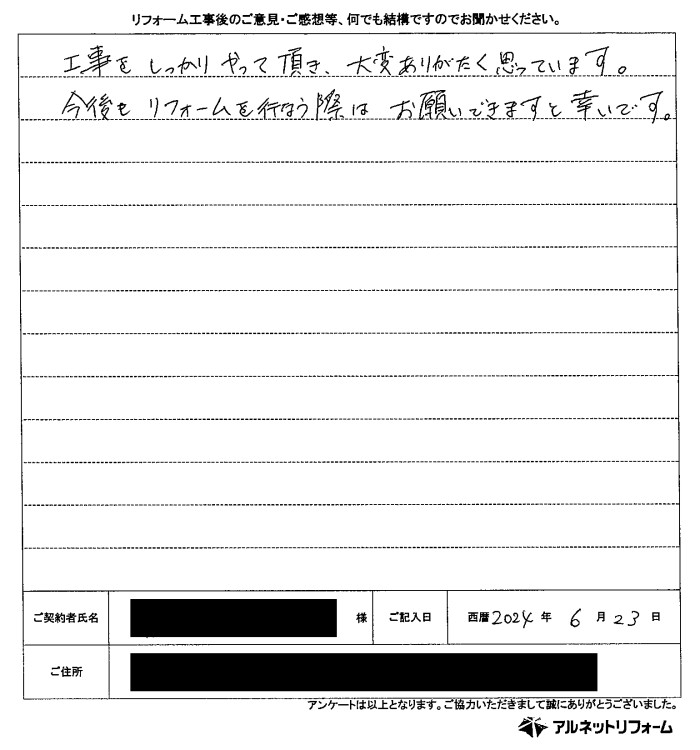 リフォーム工事後のご意見・ご感想等、何でも結構ですのでお聞かせください。
工事をしっかりやって頂き、大変ありがたく思っています。
今後もリフォームを行なう際はお願いできますと幸いです。
ご契約者氏名 様 ご記入日 西暦2024年 6月23日
ご住所
アンケートは以上となります。ご協力いただきまして誠にありがとうございました。
アルネットリフォーム